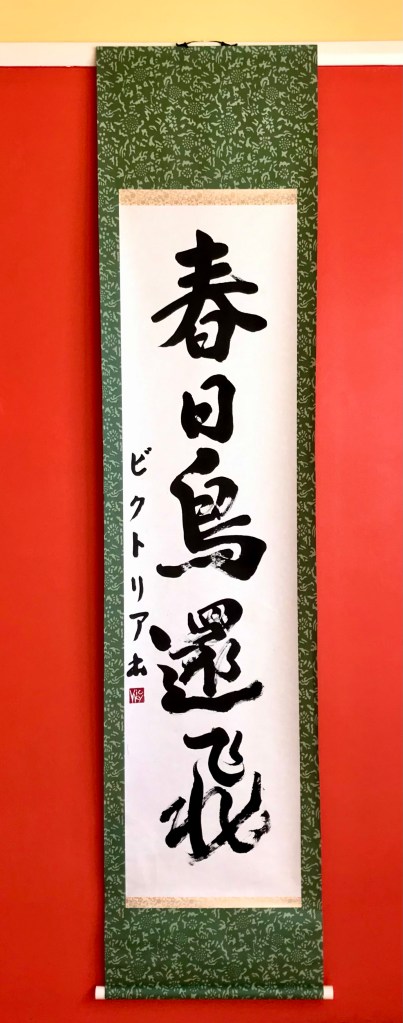 春日鳥還飛
ビクトリア